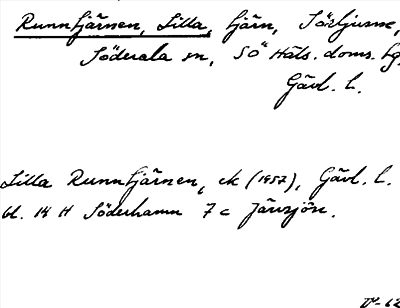 Runntjärnen, Lilla, tjärn, Sörljusne,
Söderala sn, SÖ Häls. doms. hg,
Gävl. l.
Lilla Runntjärnen, ek (1957), Gävl. l.
bl. 14 H Söderhamn 7 c